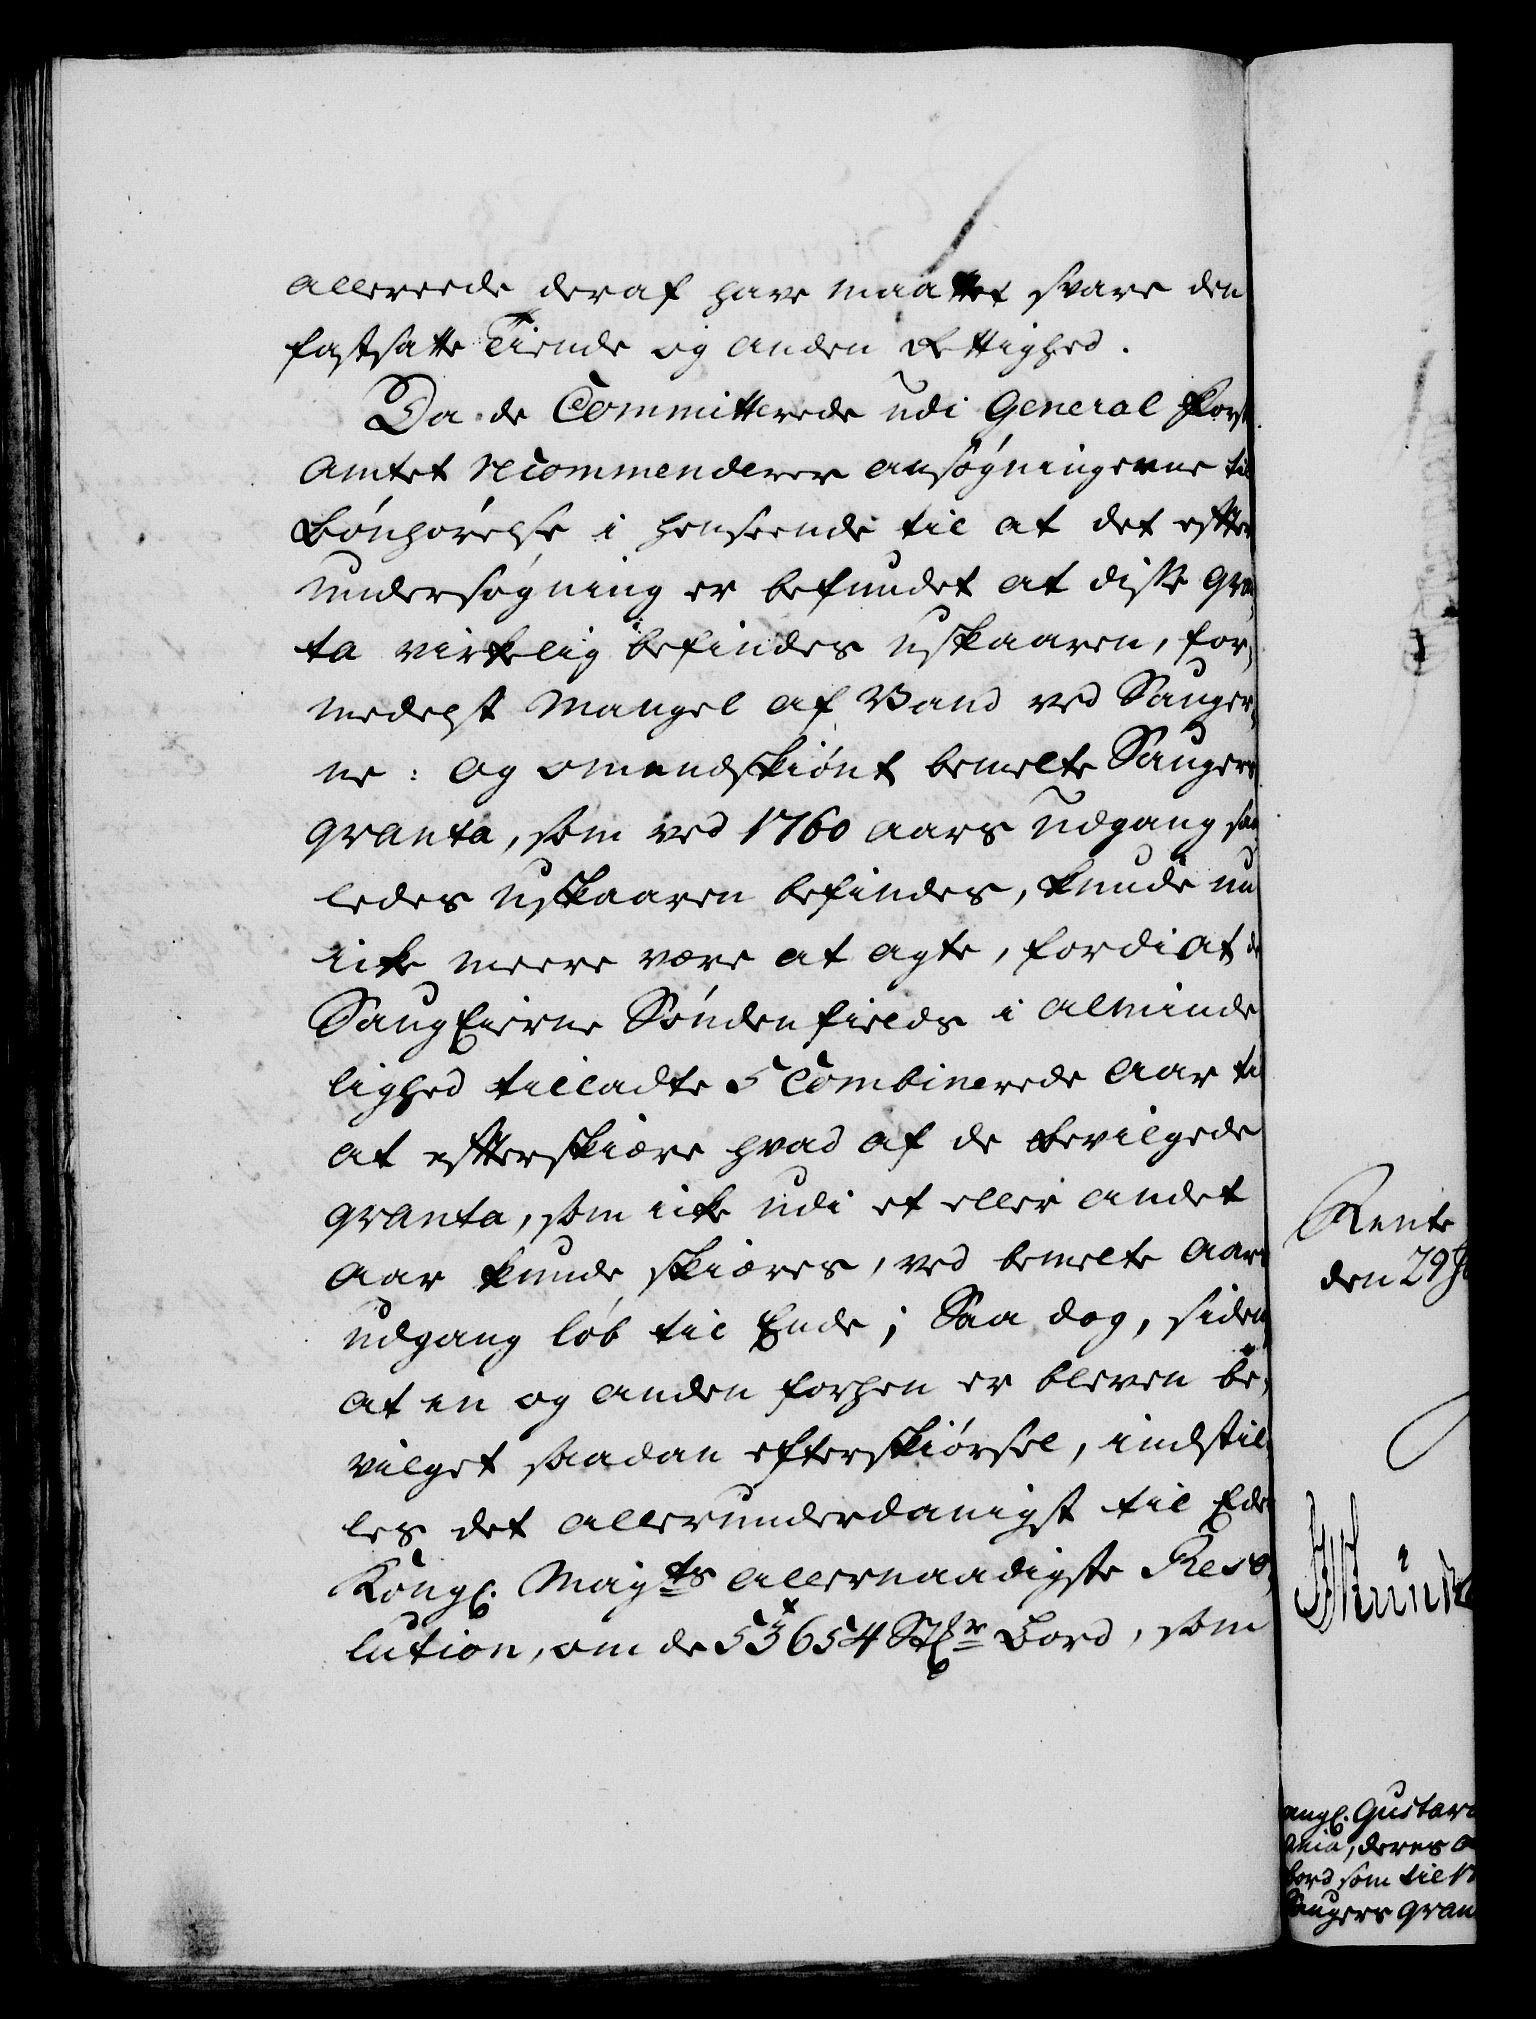 allereede deraf have maattet svare den
fastsatte Tiende og anden Rettighed.
Da de Committerede udi General Forst
Amtet recommenderer ansøgningerne til
Bønhørelse i henseende til at det efter
undersøgning er befundet at disse qvan,
ta virkelig befindes uskaaren, for,
medelst Mangel af Vand ved Sauger,
ne: og omendskiønt bemelte Saugers
qvanta, som ved 1760 aars udgang saa,
ledes uskaaren befindes, kunde nu
icke meere være at agte, fordi at de
Saug Eierne Søndenfields i alminde
lighed tilladte 5 Combinerede Aar til
at efterskiære hvad af de bevilgede
qvanta, som icke udi et eller andet
Aar kunde skiæres, ved bemelte Aars
udgang løb til Ende; Saa dog, siden
at en og anden forhen er bleven be,
vilget saadan efterskiørsel, indstil,
les det allerunderdanigst til Eders
Kongl. Mayts allernaadigste Reso,
lution, om de 53654 Stkr Bord, som
Rente
den 29
angl. Gustav
ania, deres
bord som til 17
Saugers qvan